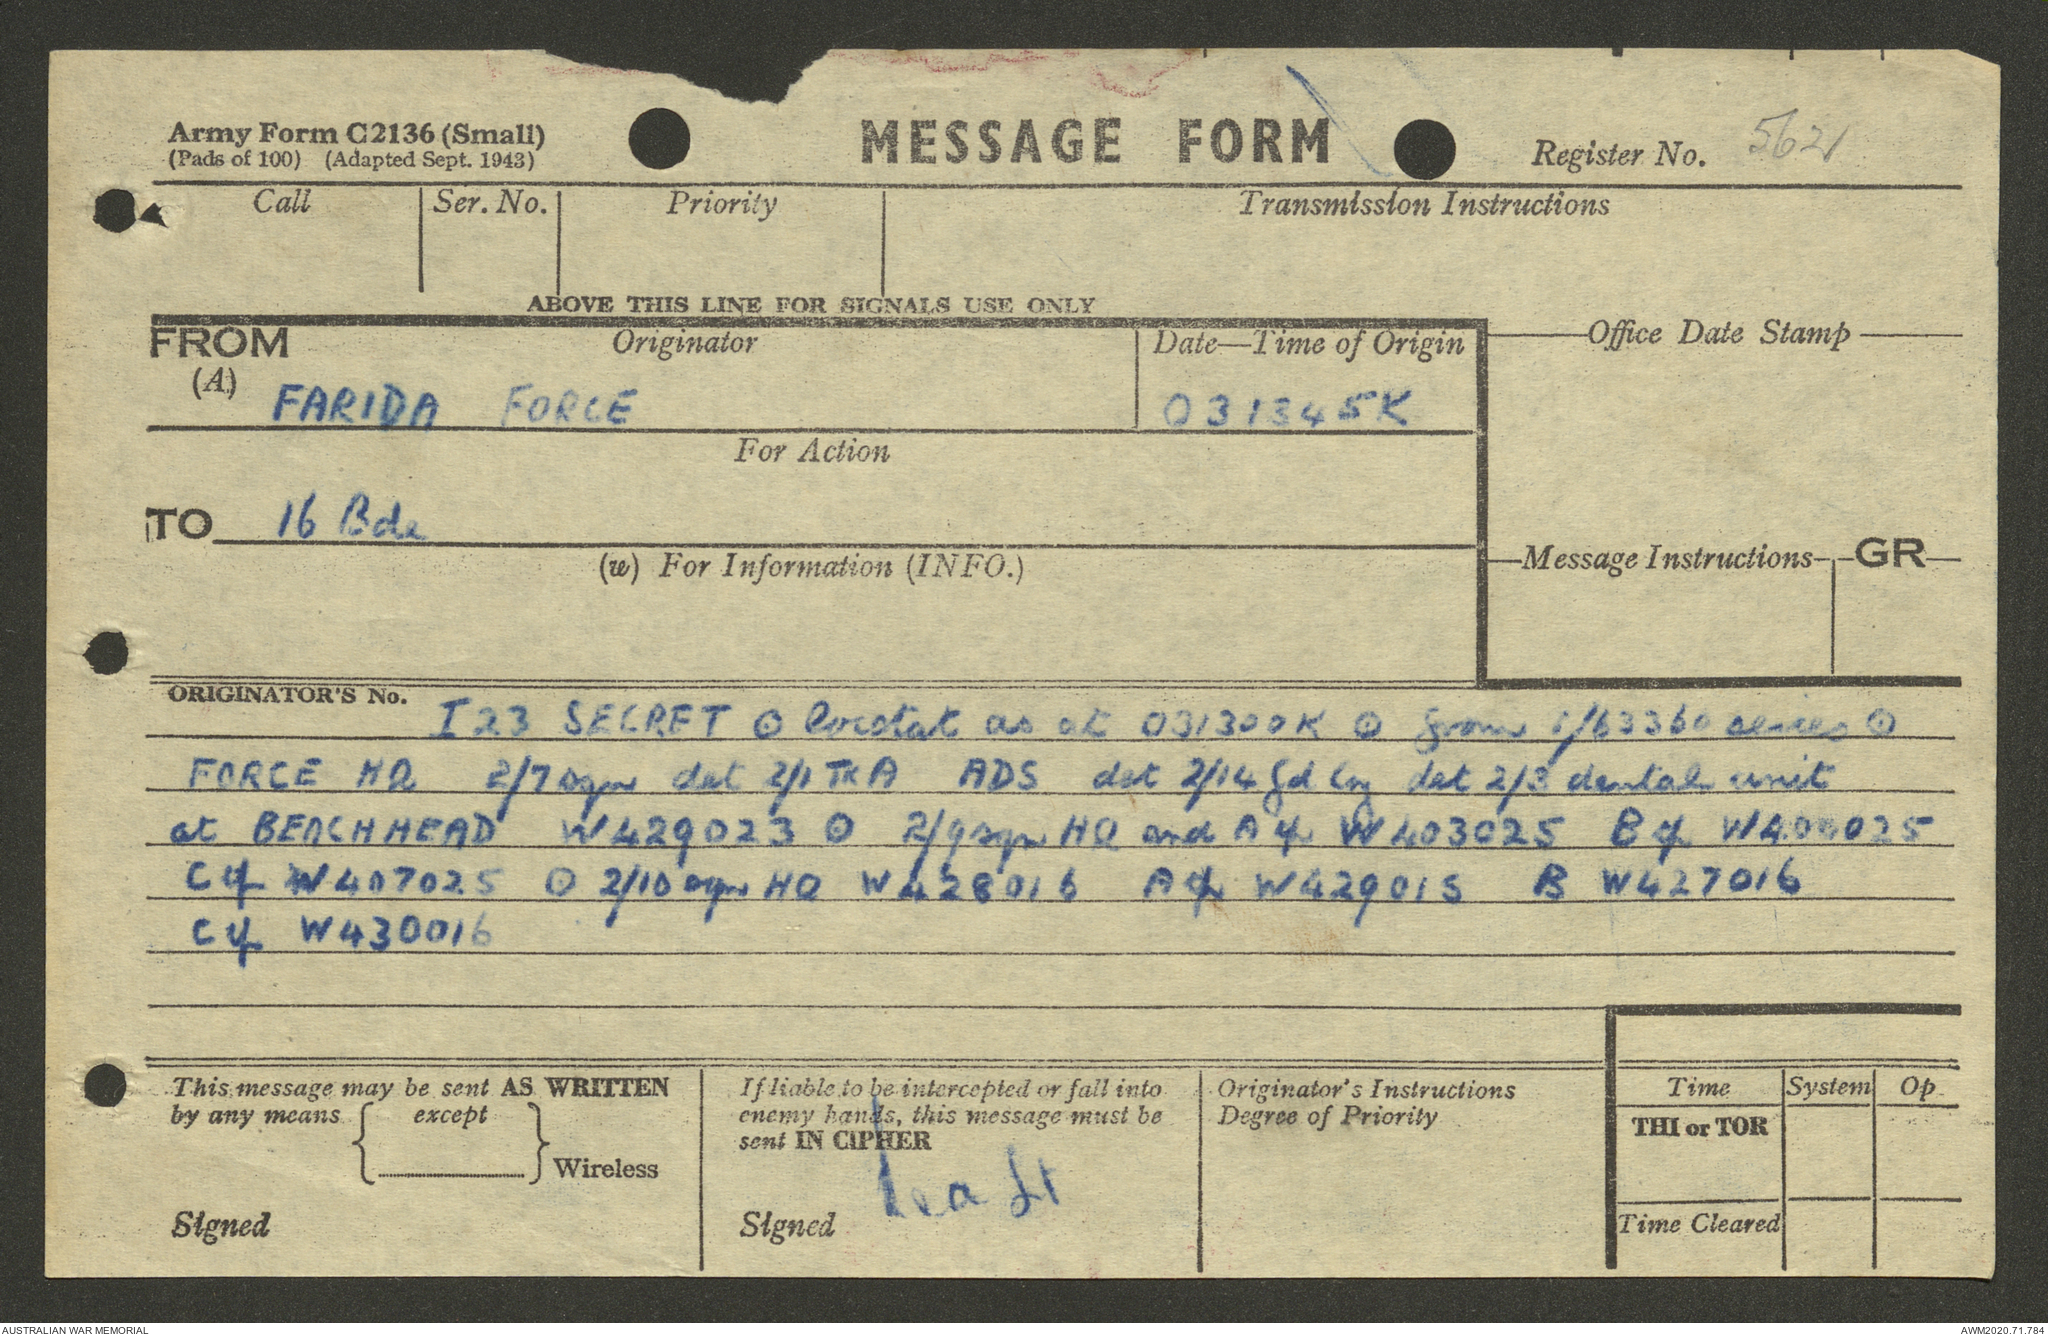 Army Form C2136 (Small)
(Pads of 100) (Adapted Sept. 1943)
MESSAGE FORM
Register No. 5621
Call
Ser. No.
Priority
Transmission Instructions
ABOVE THIS LINE FOR SIGNALS USE ONLY
FROM
(A)
Originator
FARIDA FORCE
Date—Time of Origin
031345K
Office Date Stamp
For Action
TO 16 Bde
(w) For Information (INFO.)
Message Instructions GR
ORIGINATOR'S No.
I 23 SECRET ⊙ locstat as at 031300K ⊙ from series ⊙
FORCE HQ 2/7 sqn det 2/1 ADS det 2/14 fd coy det 2/3 dental unit
at BEACHHEAD W429023 ⊙ 2/9 sqn HQ and A tp W403025 B tp
C tp W407025 ⊙ 2/10 sqn HQ W428016 A tp W429015 B W427016
C tp W430016
This message may be sent AS WRITTEN
by any means except
Wireless
Signed
If liable to be intercepted or fall into
enemy hands, this message must be
sent IN CIPHER
Signed Lt
Originator's Instructions
Degree of Priority
Time System Op
THI or TOR
Time Cleared
AUSTRALIAN WAR MEMORIAL
AWM2020.71.784